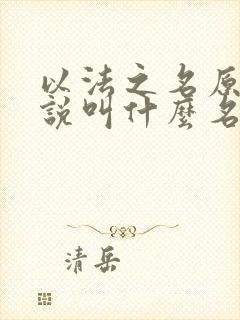 以法之名原
說叫什麼名
清岳